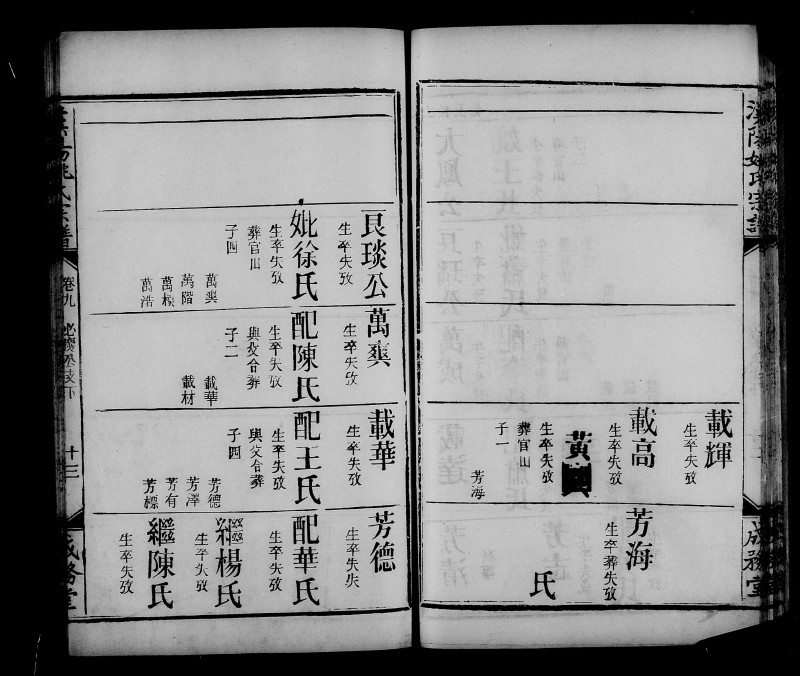 漢陽姚氏宗譜
成務堂
載輝
生卒失攷
載高
生卒失攷
黃
生卒失攷
葬官山
子一
芳海
芳海
生卒葬失攷
氏
良琰公
生卒失攷
妣徐氏
生卒失攷
葬官山
子四
萬爽
萬階
萬模
萬浩
萬爽
生卒失攷
配陳氏
生卒失攷
與父合葬
子二
載華
載材
載華
生卒失攷
配王氏
生卒失攷
與父合葬
子四
芳德
芳澤
芳有
芳標
芳德
生卒失失
配華氏
生卒失攷
繼楊氏
生卒失攷
繼陳氏
生卒失攷
漢陽姚氏宗譜
卷九
十三
成務堂